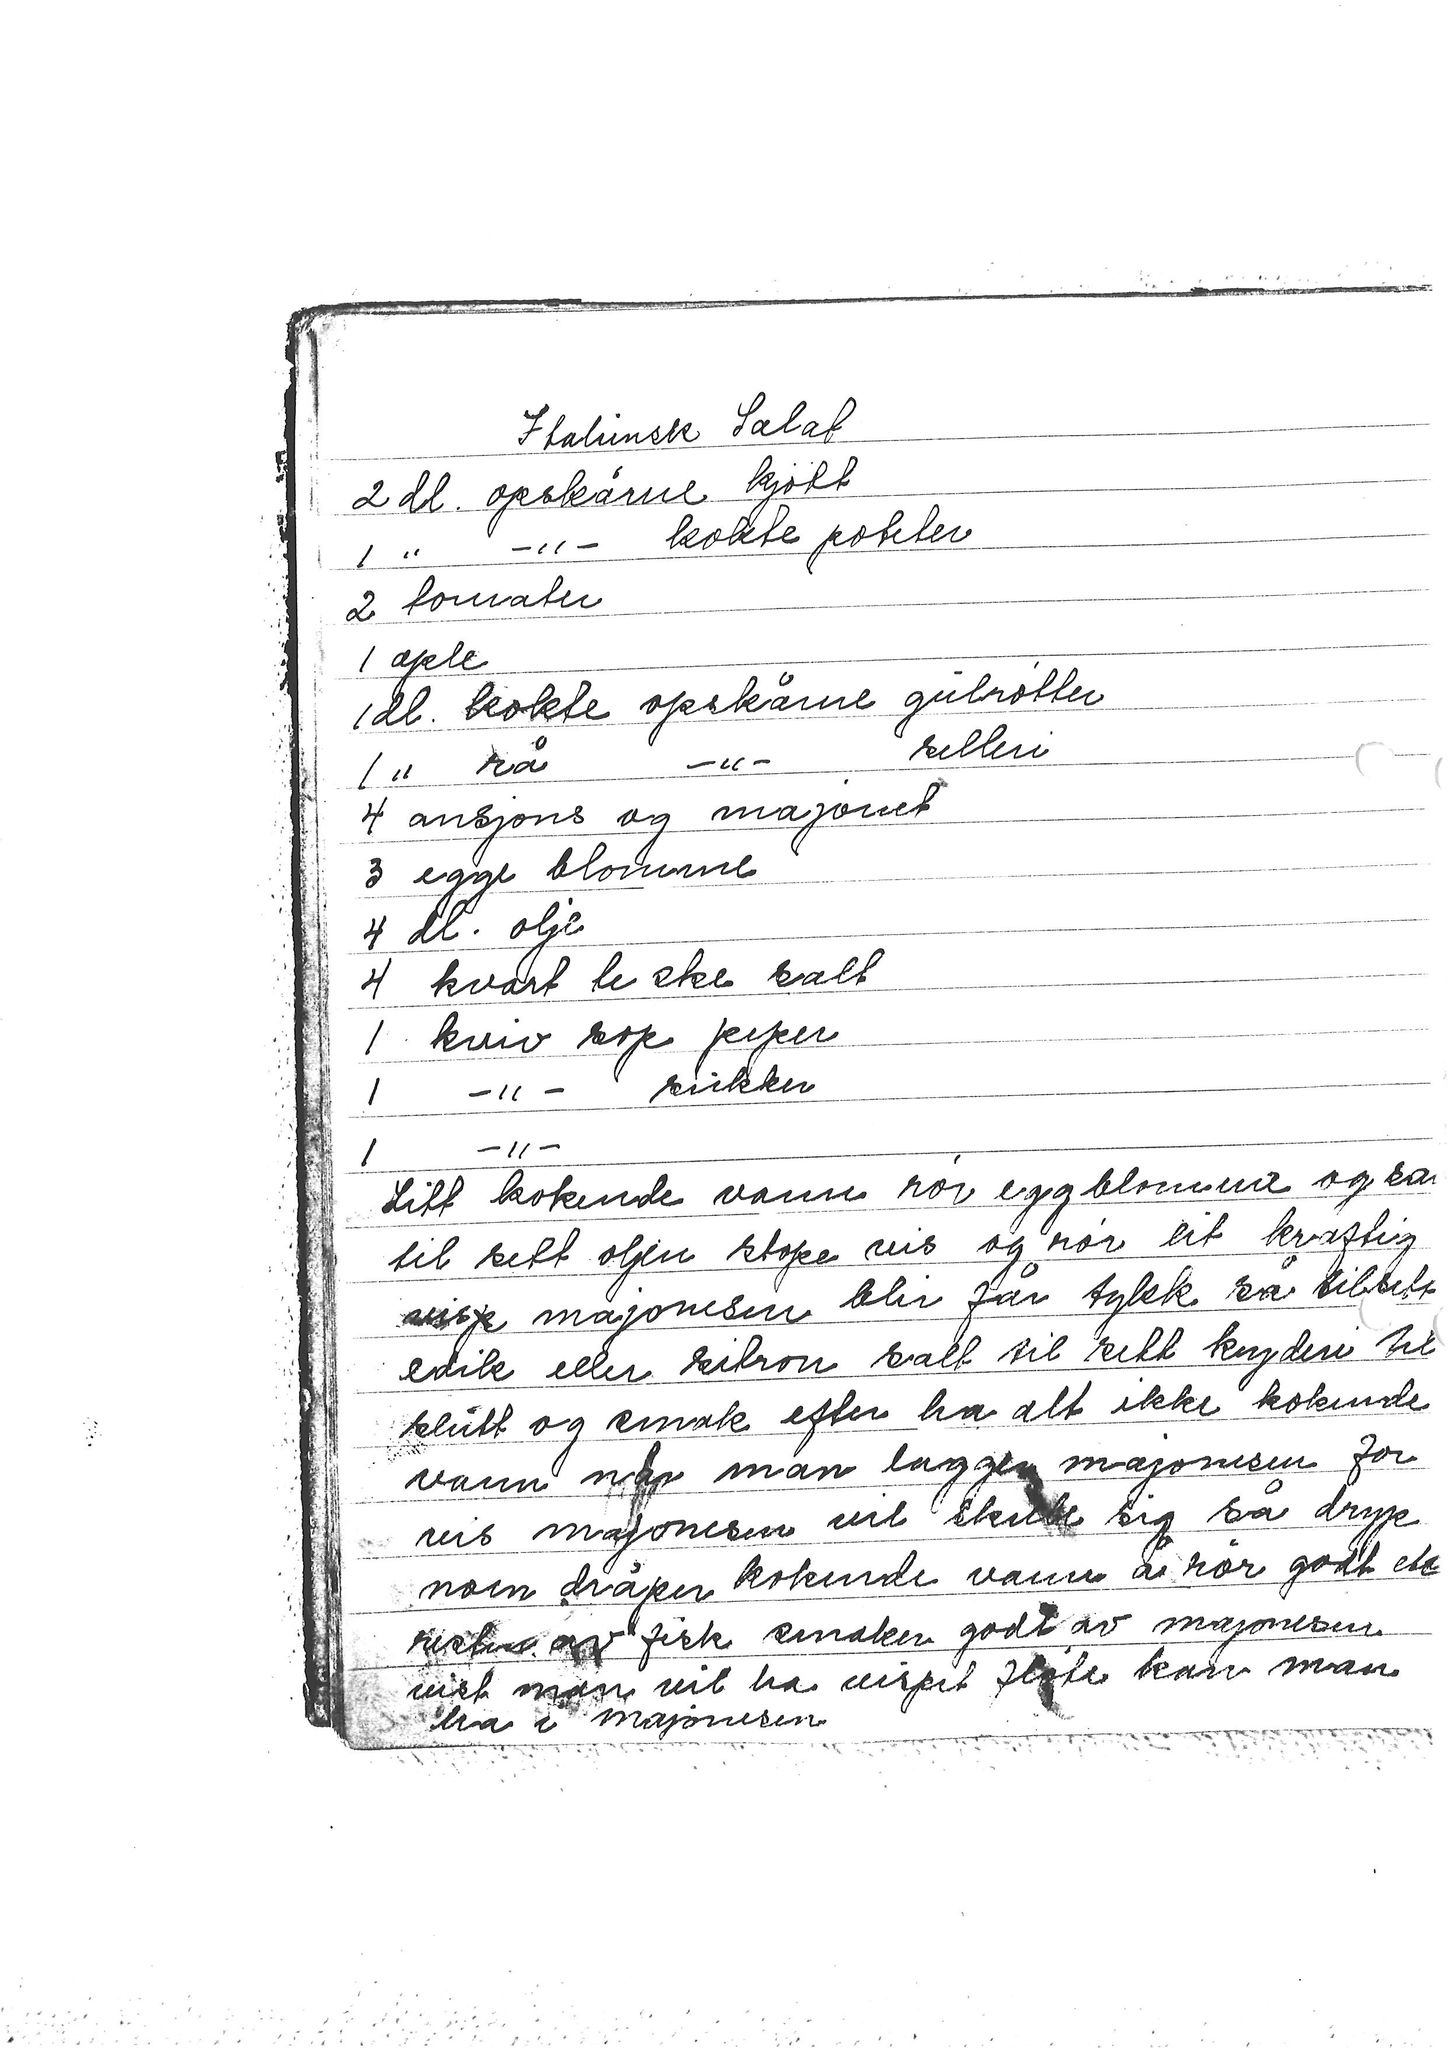 Italiensk Salat
2 dl. opskårne kjött
1 " -"- kokte poteter
2 tomater
1 eple
1 dl. kokte opskårne gulrötter
1 " rå -"- selleri
4 ansjons og majonet
3 egge blomme
4 dl. olje
4 kvart te ske salt
1 kniv sop peper
1 -"- sukker
1 -"-
Litt kokende vann rör eggblomme og sa
til sett oljen stope vis og rör eit kraftig
visp majonesen blir får tykk så tilsett
edik eller sitron salt til sett krydderi til
slutt og smak efter ha alt ikke kokende
vann når man lagger majonesen for
vis majonesen vil skille sig så dryp
noen dråper kokende vann å rör godt
rester av fisk smaker godt av majonesen
vist man vil ha vispet flöte kan man
ha i majonesen